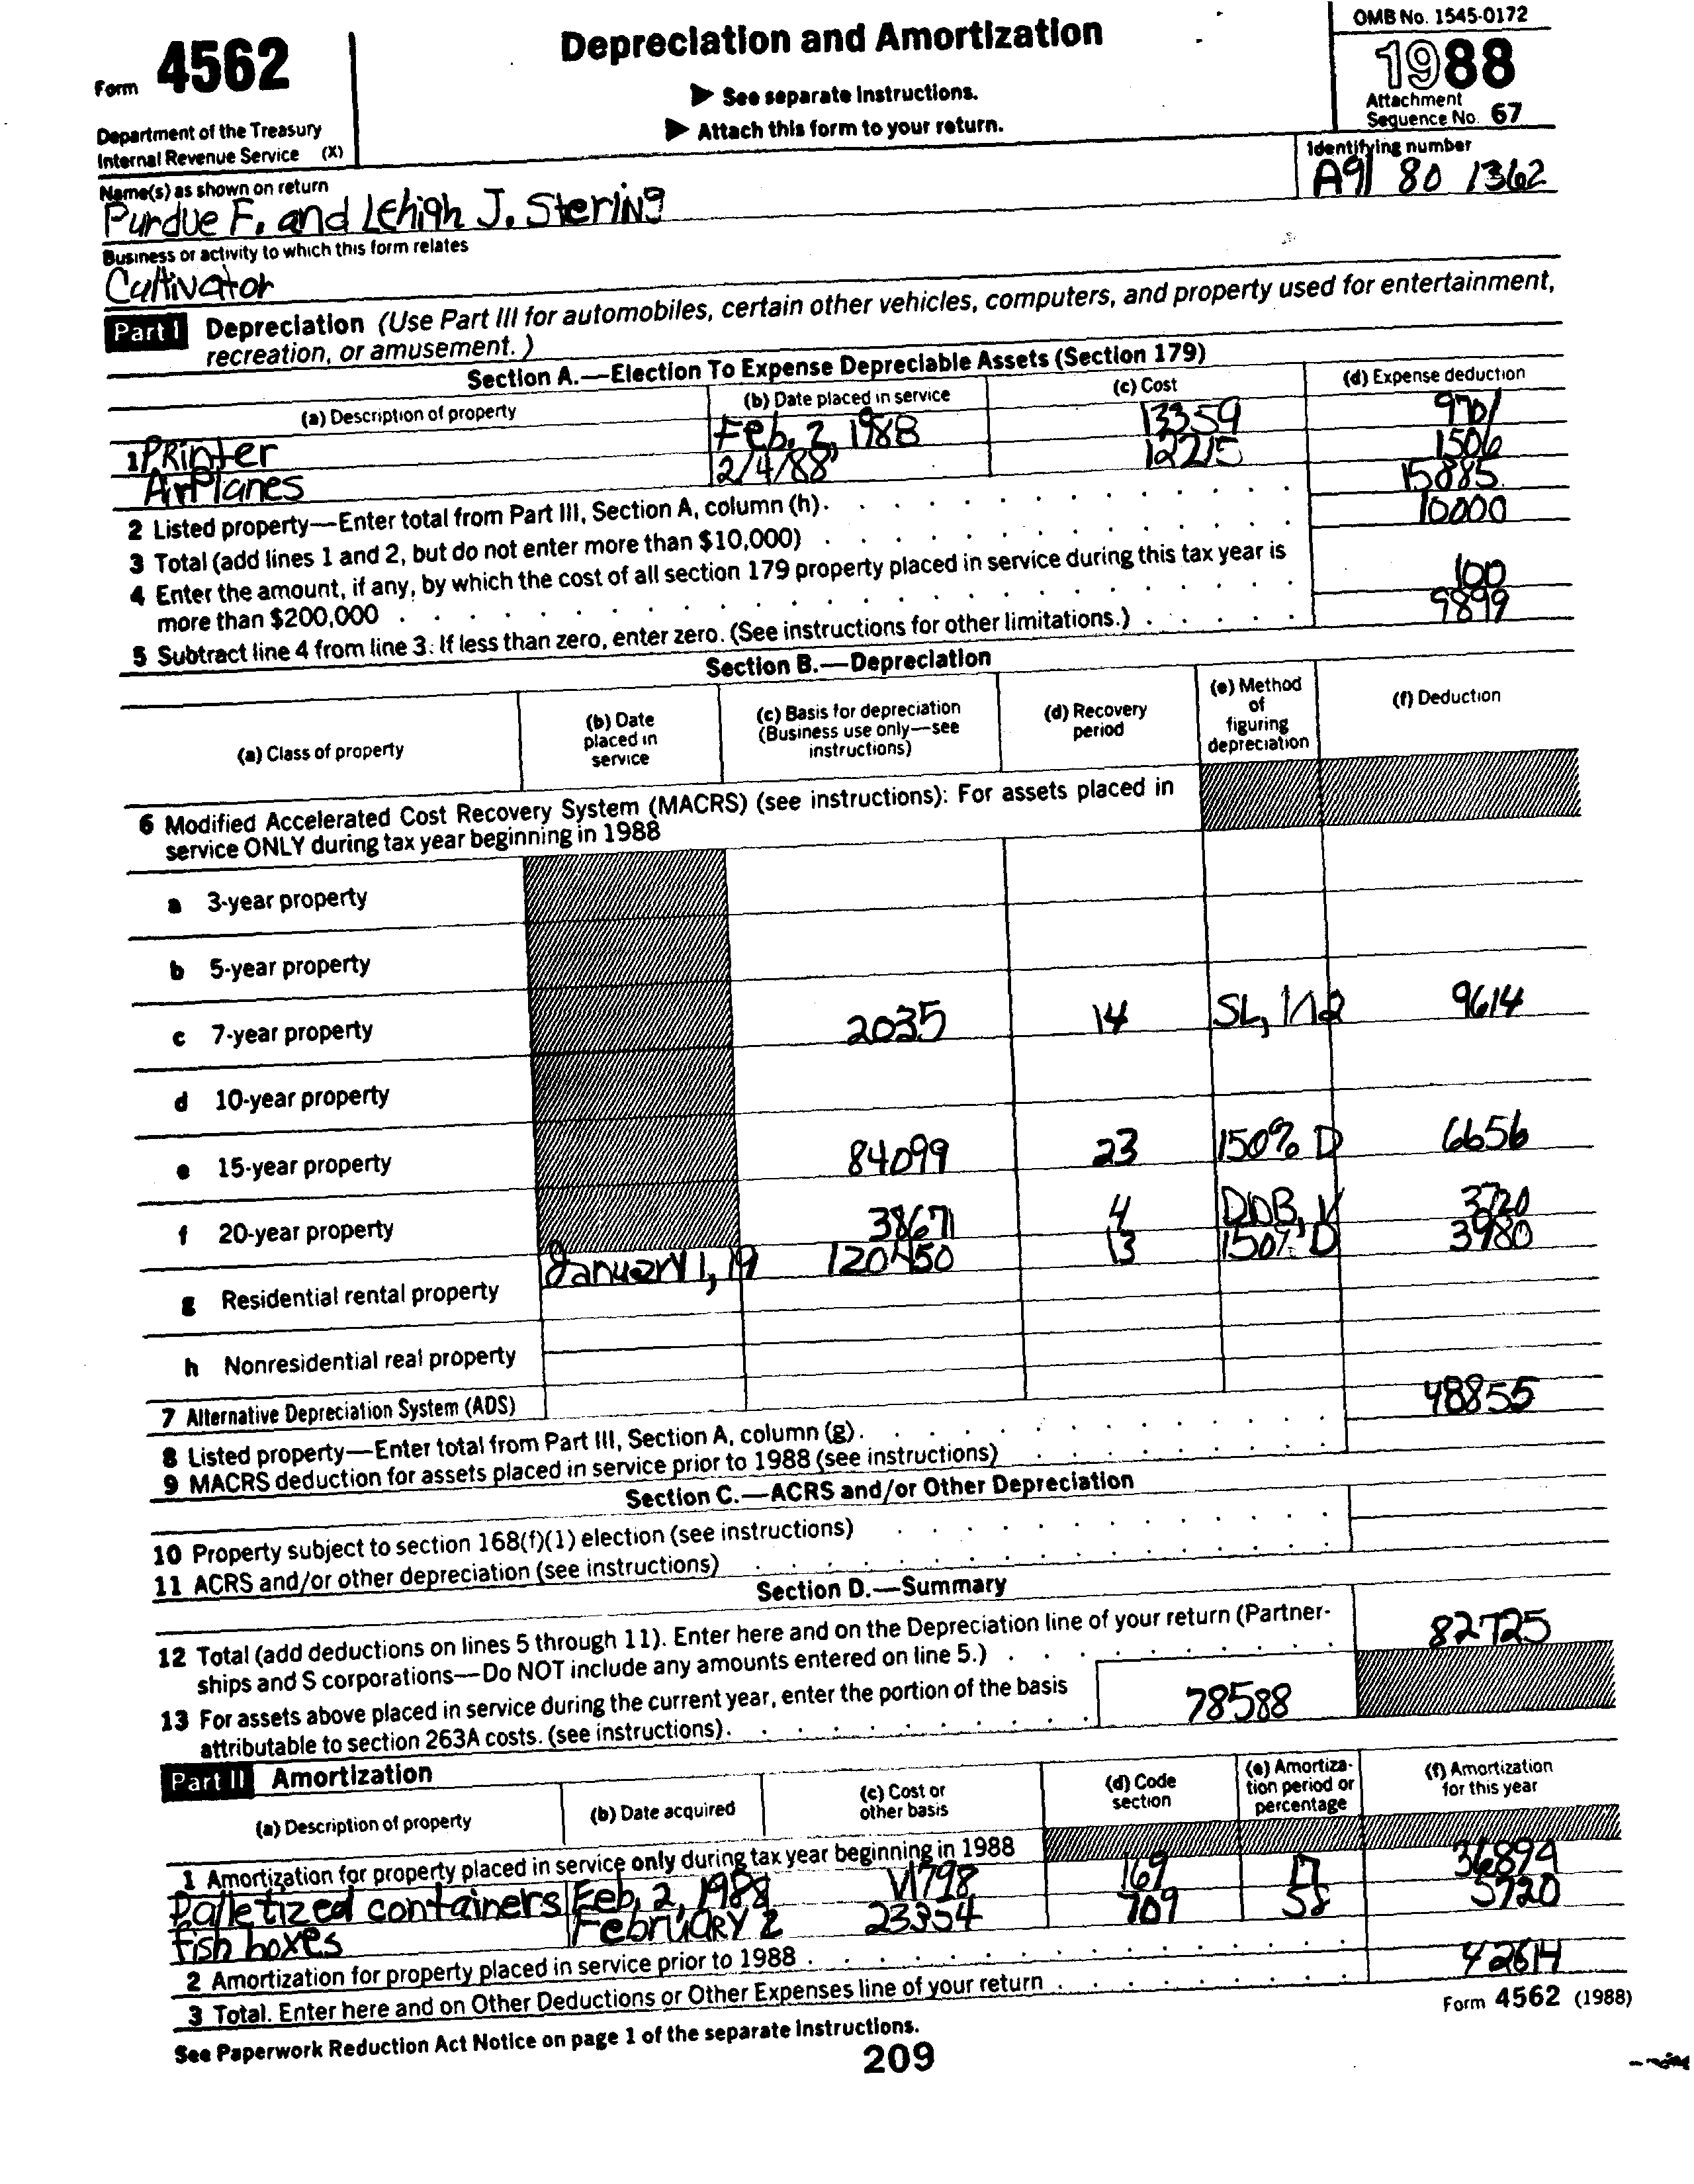 Form 4562
Department of the Treasury
Internal Revenue Service (X)
Depreciation and Amortization
▶ See separate Instructions.
▶ Attach this form to your return.
OMB No. 1545-0172
1988
Attachment
Sequence No. 67
Name(s) as shown on return
Purdue F. and Lehigh J. Stering
Identifying number
A91 80 1362
Business or activity to which this form relates
Cultivator
Part I Depreciation (Use Part III for automobiles, certain other vehicles, computers, and property used for entertainment,
recreation, or amusement.)
Section A.—Election To Expense Depreciable Assets (Section 179)
(a) Description of property (b) Date placed in service (c) Cost (d) Expense deduction
1 PRinter Feb. 2, 1988 13359 9701
AirPlanes 2/4/88 12215 1506
2 Listed property—Enter total from Part III, Section A, column (h). 15885
3 Total (add lines 1 and 2, but do not enter more than $10,000) 10000
4 Enter the amount, if any, by which the cost of all section 179 property placed in service during this tax year is
more than $200,000 100
5 Subtract line 4 from line 3. If less than zero, enter zero. (See instructions for other limitations.) 9899
Section B.—Depreciation
(a) Class of property (b) Date placed in service (c) Basis for depreciation (Business use only—see instructions) (d) Recovery period (e) Method of figuring depreciation (f) Deduction
6 Modified Accelerated Cost Recovery System (MACRS) (see instructions): For assets placed in
service ONLY during tax year beginning in 1988
a 3-year property
b 5-year property
c 7-year property 2035 14 SL, 1/12 9614
d 10-year property
e 15-year property 84099 23 150% D 6656
f 20-year property 38671 4 DDB, 3720
g Residential rental property January 1, 19 120450 13 150% D 3980
h Nonresidential real property
7 Alternative Depreciation System (ADS)
8 Listed property—Enter total from Part III, Section A, column (g). 48855
9 MACRS deduction for assets placed in service prior to 1988 (see instructions)
Section C.—ACRS and/or Other Depreciation
10 Property subject to section 168(f)(1) election (see instructions)
11 ACRS and/or other depreciation (see instructions)
Section D.—Summary
12 Total (add deductions on lines 5 through 11). Enter here and on the Depreciation line of your return (Partner-
ships and S corporations—Do NOT include any amounts entered on line 5.) 82725
13 For assets above placed in service during the current year, enter the portion of the basis
attributable to section 263A costs. (see instructions). 78588
Part II Amortization
(a) Description of property (b) Date acquired (c) Cost or other basis (d) Code section (e) Amortiza-tion period or percentage (f) Amortization for this year
1 Amortization for property placed in service only during tax year beginning in 1988
Palletized containers Feb, 2, 1988 169 17 36894
fish boxes FebruARY 2 23354 709 58 5720
2 Amortization for property placed in service prior to 1988
3 Total. Enter here and on Other Deductions or Other Expenses line of your return 42614
See Paperwork Reduction Act Notice on page 1 of the separate Instructions.
Form 4562 (1988)
209